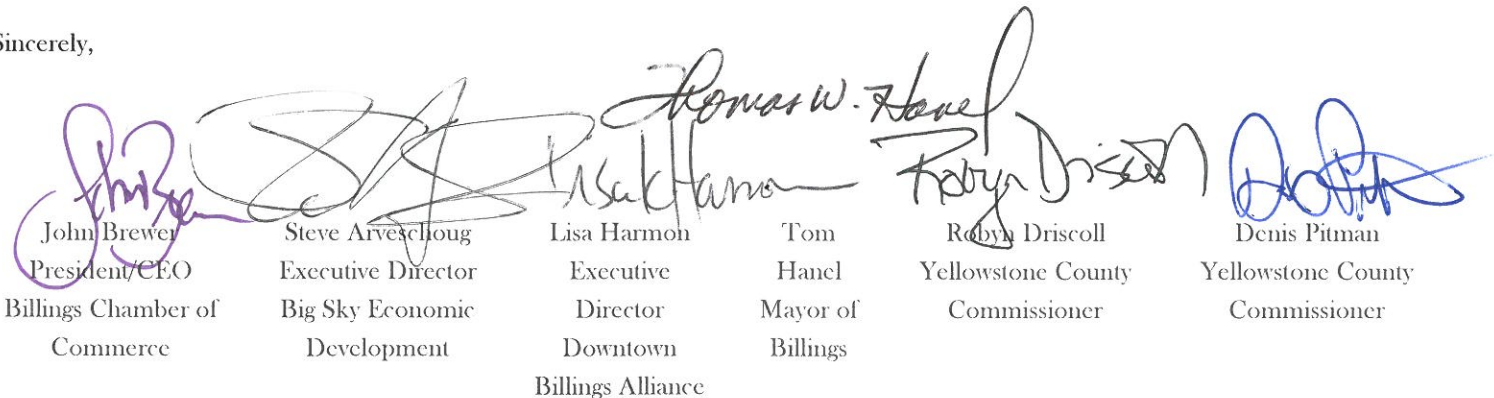 Sincerely,
Thomas W. Hanel
John Brewer
President/CEO
Billings Chamber of
Commerce
Steve Arveschoug
Executive Director
Big Sky Economic
Development
Lisa Harmon
Executive
Director
Downtown
Billings Alliance
Tom
Hanel
Mayor of
Billings
Robyn Driscoll
Robyn Driscoll
Yellowstone County
Commissioner
Denis Pitman
Yellowstone County
Commissioner